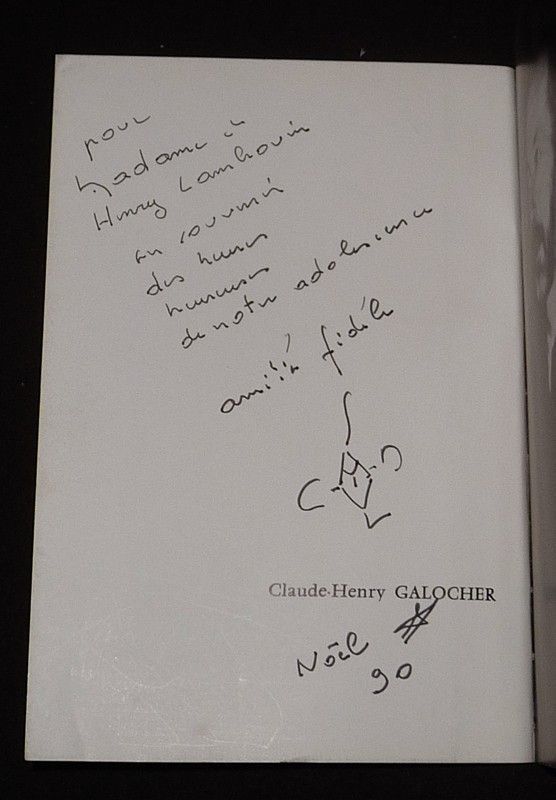 pour
Madame et
Henry
en souvenir
des heures
heureuses
de notre adolescence
amitié fidèle
Claude-Henry GALOCHER
Noël
90